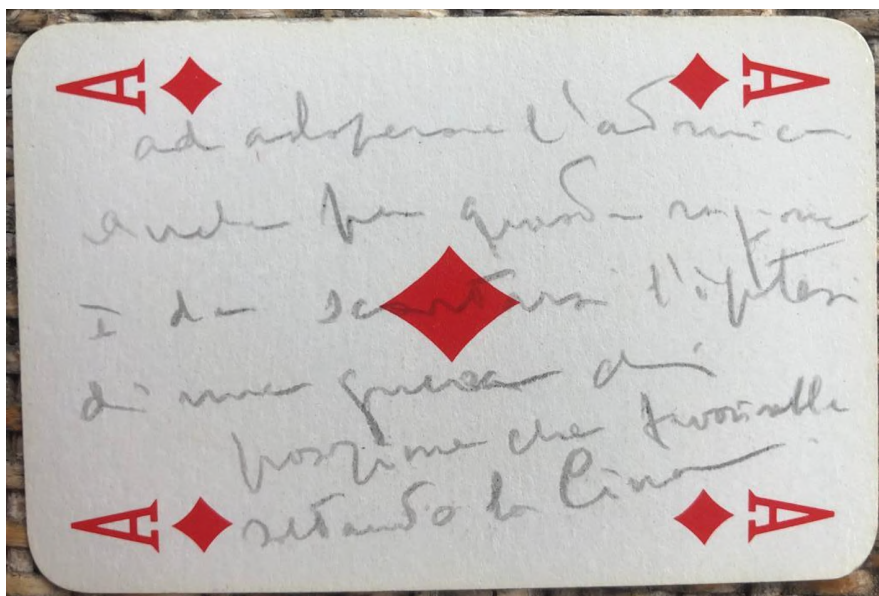 A A
ad adoperare l'atomica
Anche per questa ragione
È da scartarsi l'ipotesi
di una guerra di
posizione che favorirebbe
soltanto la Cina
A A